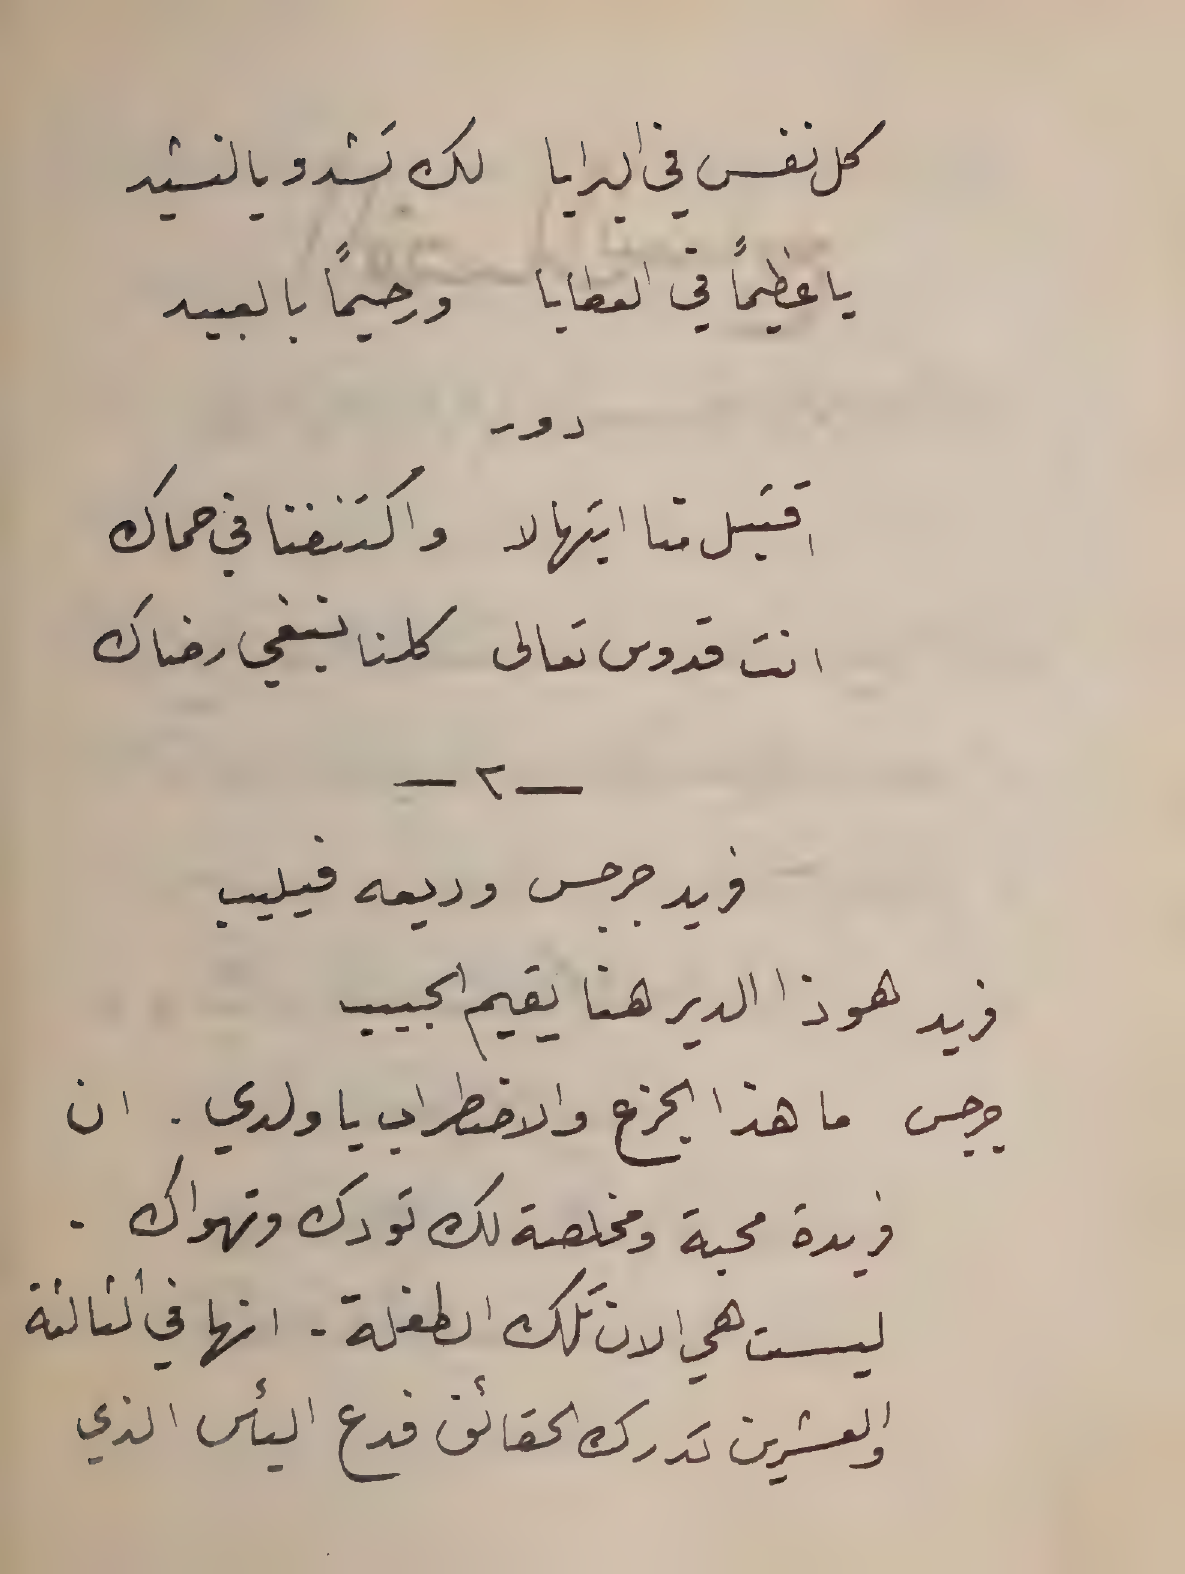 كل نفس في البرايا لك تشدو بالنشيد
يا عظيماً في العطايا ورحيماً بالعبيد
دور
اقتبل منا ابتهالا واكتنفنا في حماك
انت قدوس تعالى كلنا نبتغي رضاك
— ٢ —
فريد جرجس وديعه فيليب
فريد هوذا الدير هنا يقيم الحبيب
جرجس ما هذا الجزع والاضطراب يا ولدي . ان
فريدة محبة ومخلصة لك تودك وتهواك .
ليست هي الان تلك الطفلة - انها في الثالثة
والعشرين تدرك الحقائق فدع اليأس الذي